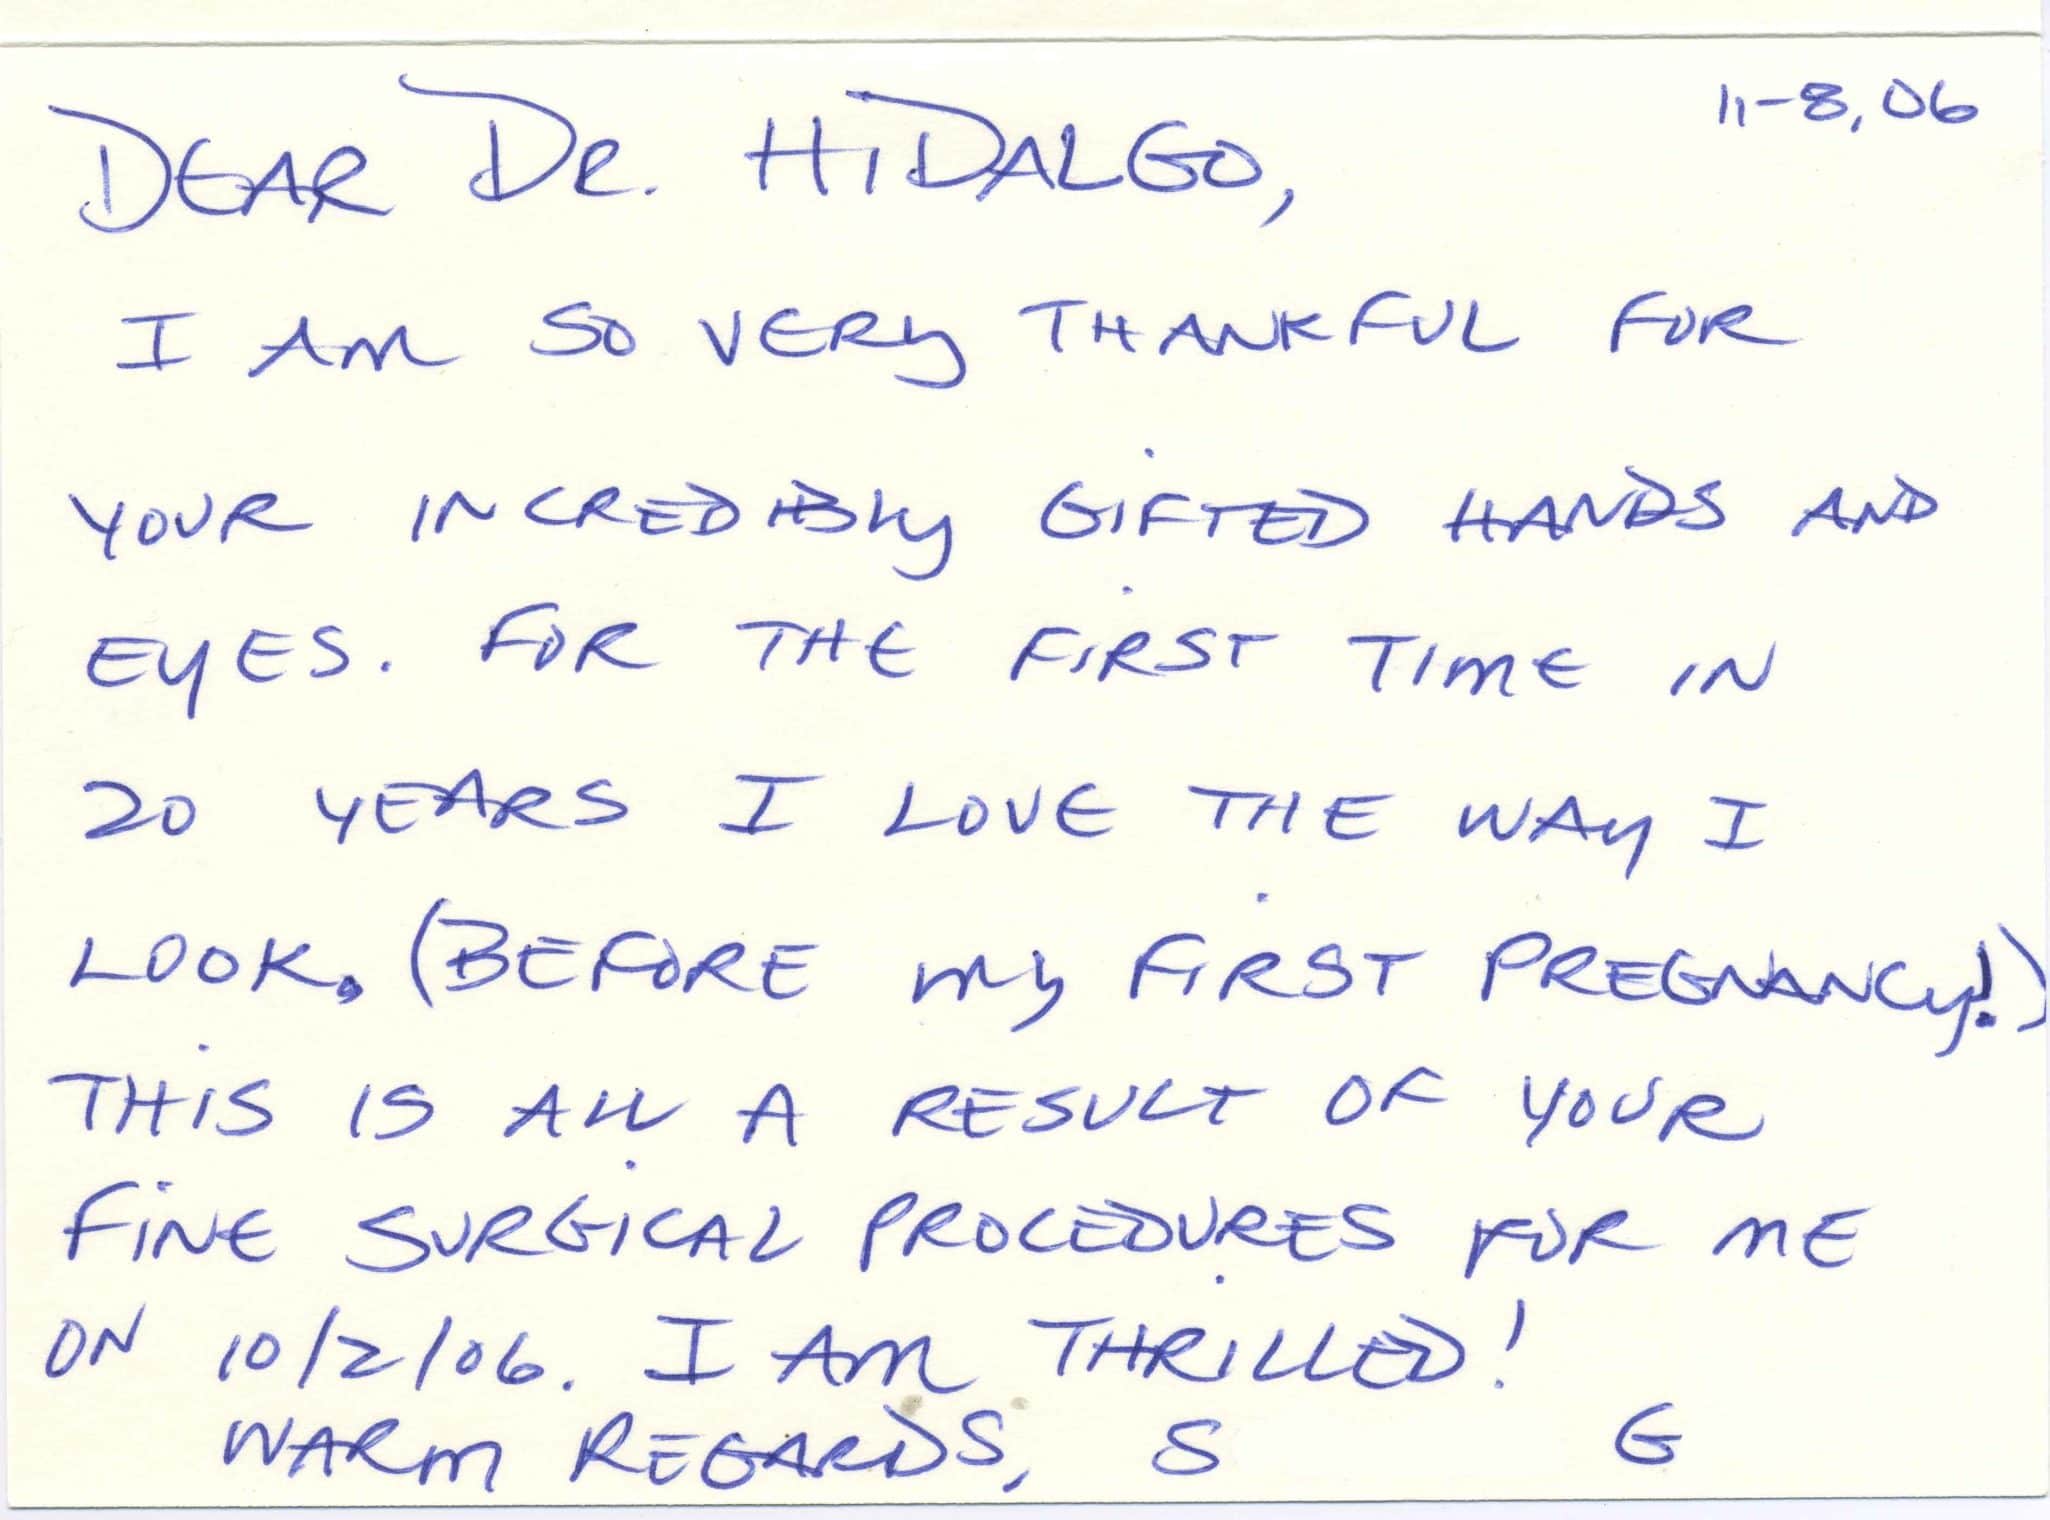 11-8,06
DEAR DR. HIDALGO,
I AM SO VERY THANKFUL FOR
YOUR INCREDIBLY GIFTED HANDS AND
EYES. FOR THE FIRST TIME IN
20 YEARS I LOVE THE WAY I
LOOK. (BEFORE MY FIRST PREGNANCY!)
THIS IS ALL A RESULT OF YOUR
FINE SURGICAL PROCEDURES FOR ME
ON 10/2/06. I AM THRILLED!
WARM REGARDS, S G